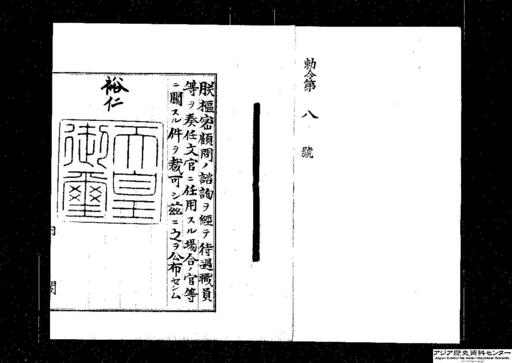 勅令第八號
朕樞密顧問ノ諮詢ヲ經テ待遇職員
等ヲ奏任文官ニ任用スル場合ノ官等
ニ關スル件ヲ裁可シ茲ニ之ヲ公布セシム
裕仁
天皇
御璽
内
閣
アジア歴史資料センター
Japan Center for Asian Historical Records